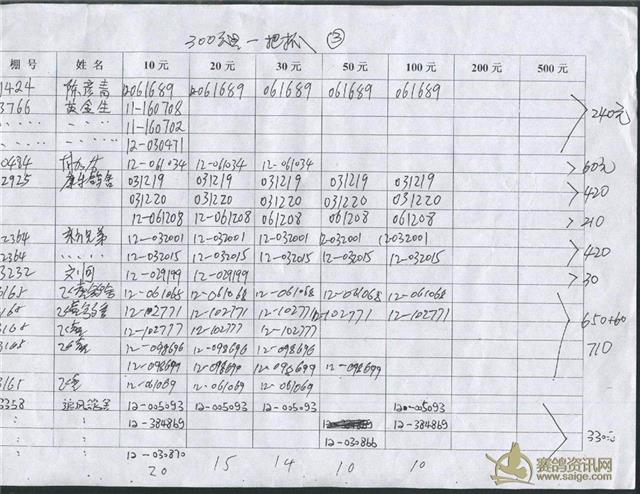 300 一把抓 ③
棚号 姓名 10元 20元 30元 50元 100元 200元 500元
1424 陈彦高 12-061689 12-061689 061689 061689 061689
3766 黄金生 11-160708
11-160702 240元
12-030471
0484 12-061034 12-061034 12-061034 60元
2925 031219 031219 031219 031219 031219
031220 031220 031220 031220 031220 420
12-061208 12-061208 061208 061208 061208 210
2364 新兄弟 12-032001 12-032001 12-032001 12-032001 12-032001
2364 12-032015 12-032015 12-032015 12-032015 12-032015 420
3232 12-029199 12-029199 30
3165 12-061068 12-061068 12-061068 12-061068 12-061068
3168 12-102771 12-102771 12-102771 12-102771 12-102771 650+60
3168 12-102777 12-102777 12-102777 710
3165 12-098696 12-098696 12-098696
12-098699 12-098699 12-098699 12-098699
3165 12-061069 12-061069 12-061069
3358 12-005093 12-005093 12-005093 12-005093
12-384869 12-384869
12-030866 330元
12-030870
20 15 14 10 10
赛鸽资讯网
www.saige.com